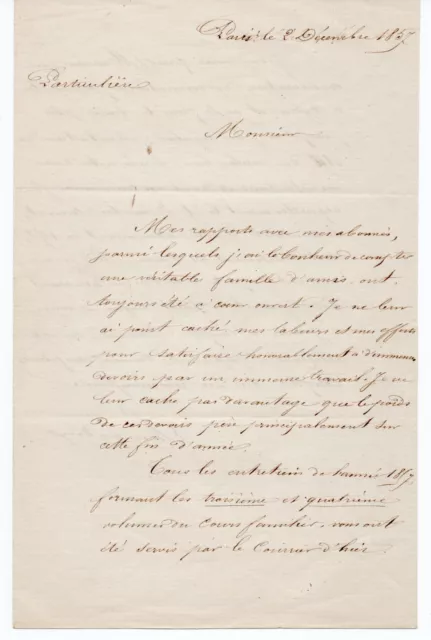 Paris, le 2 Décembre 1857
Particulière
Monsieur
Mes rapports avec mes abonnés,
parmi lesquels j'ai le bonheur de compter
une véritable famille d'amis ont
toujours été à cœur ouvert. Je ne leur
ai point caché mes labeurs et mes efforts
pour satisfaire honorablement à d'immenses
devoirs par un immense travail. Je ne
leur cache pas davantage que le poids
de ces devoirs pèse principalement sur
cette fin d'année.
Tous les entretiens de l'année 1857
formant les troisième et quatrième
volumes du Cours familier vous ont
été servis par le Courrier d'hier